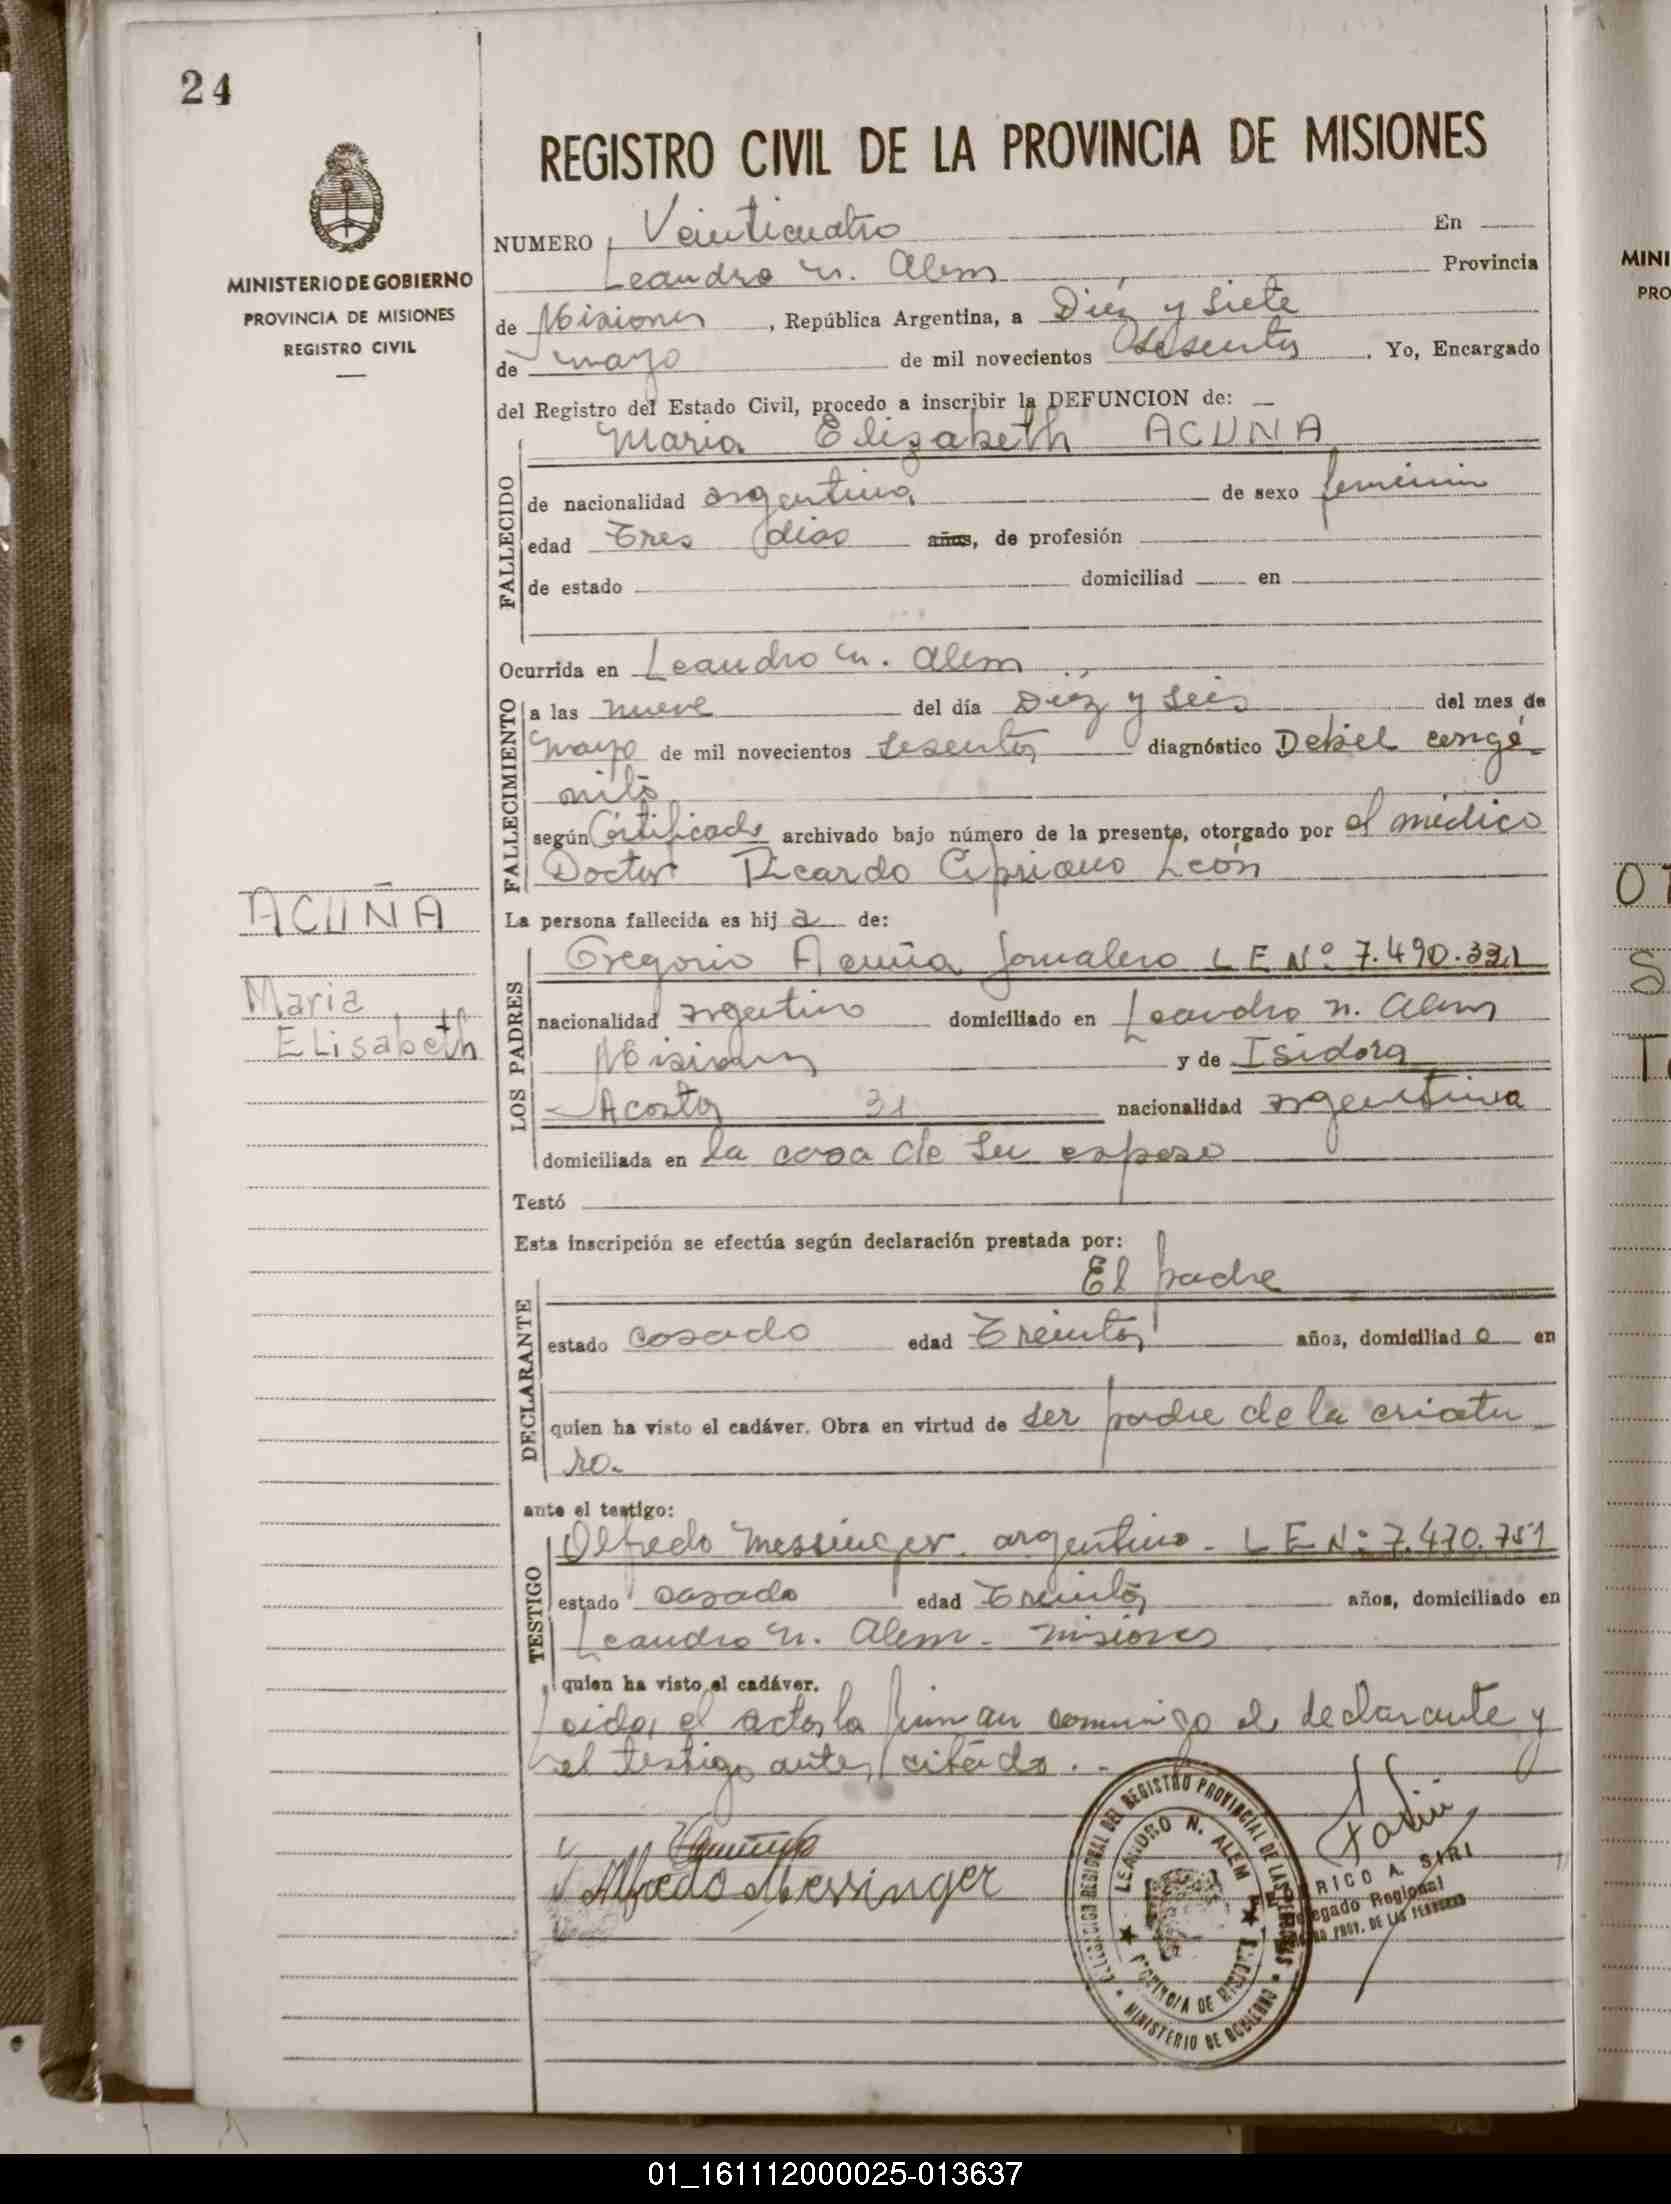 24
REGISTRO CIVIL DE LA PROVINCIA DE MISIONES
MINISTERIO DE GOBIERNO
PROVINCIA DE MISIONES
REGISTRO CIVIL
NUMERO Veinticuatro En
Leandro N. Alem Provincia
de Misiones, República Argentina, a Diéz y Siete
de mayo de mil novecientos sesenta. Yo, Encargado
del Registro del Estado Civil, procedo a inscribir la DEFUNCION de:
Maria Elizabeth ACUNA
FALLECIDO
de nacionalidad argentina de sexo femenin
edad Tres dias años, de profesión
de estado domiciliad en
Ocurrida en Leandro N. Alem
FALLECIMIENTO
a las nueve del día Diéz y Seis del mes de
mayo de mil novecientos sesenta diagnóstico Debil congé-
nito
según Certificado archivado bajo número de la presente, otorgado por el médico
Doctor Ricardo Cipriano León
La persona fallecida es hij a de:
ACUÑA
Maria
ELisabeth
LOS PADRES
Gregorio Acuña Jornalero L E Nº 7.490.321
nacionalidad argentino domiciliado en Leandro N. Alem
Misiones y de Isidora
Acosta 31 nacionalidad argentina
domiciliada en la casa de su esposo
Testó
Esta inscripción se efectúa según declaración prestada por:
El padre
DECLARANTE
estado casado edad Treinta años, domiciliad o en
quien ha visto el cadáver. Obra en virtud de ser padre de la criatu
ra.
ante el testigo:
TESTIGO
Alfredo Messinger. argentino - L E Nº 7.470.751
estado casado edad Treinta años, domiciliado en
Leandro N. Alem - misiones
quien ha visto el cadáver.
Leida el acta, la firman conmigo el declarante y
el testigo antes citado.
Alfredo Messinger
DELEGACION REGIONAL DEL REGISTRO PROVINCIAL DE LAS PERSONAS
LEANDRO N. ALEM
PROVINCIA DE MISIONES
MINISTERIO DE GOBIERNO
RICO A. SIRI
Delegado Regional
PROV. DE LAS PERSONAS
MINI
PRO
01_161112000025-013637